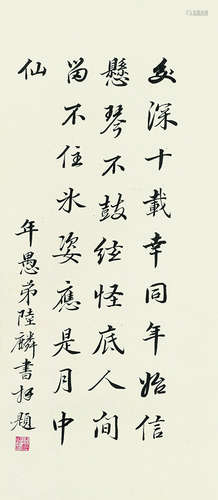 交深十載幸同年始信
懸琴不鼓絃怪底人間
留不住氷姿應是月中
仙
年愚弟陸麟書拜題